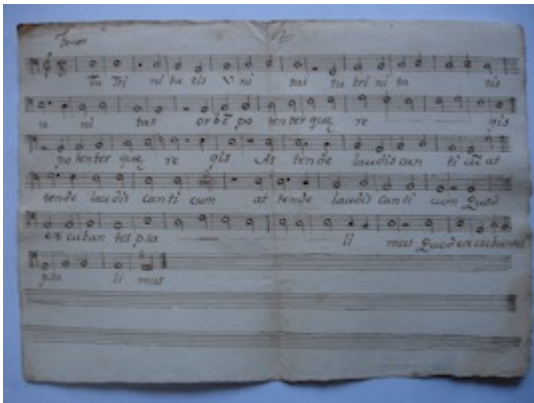 Tenor
Tu Tri ni ta tis V ni tas tu tri ni ta tis
u ni tas orbē po ten ter quę re gis
po ten ter quę re gis At ten de laudis can ti cū at
ten de laudis can ti cum at ten de laudis can ti cum Quod
ex cuban tes psa li mus Quod ex cubantes
psa li mus